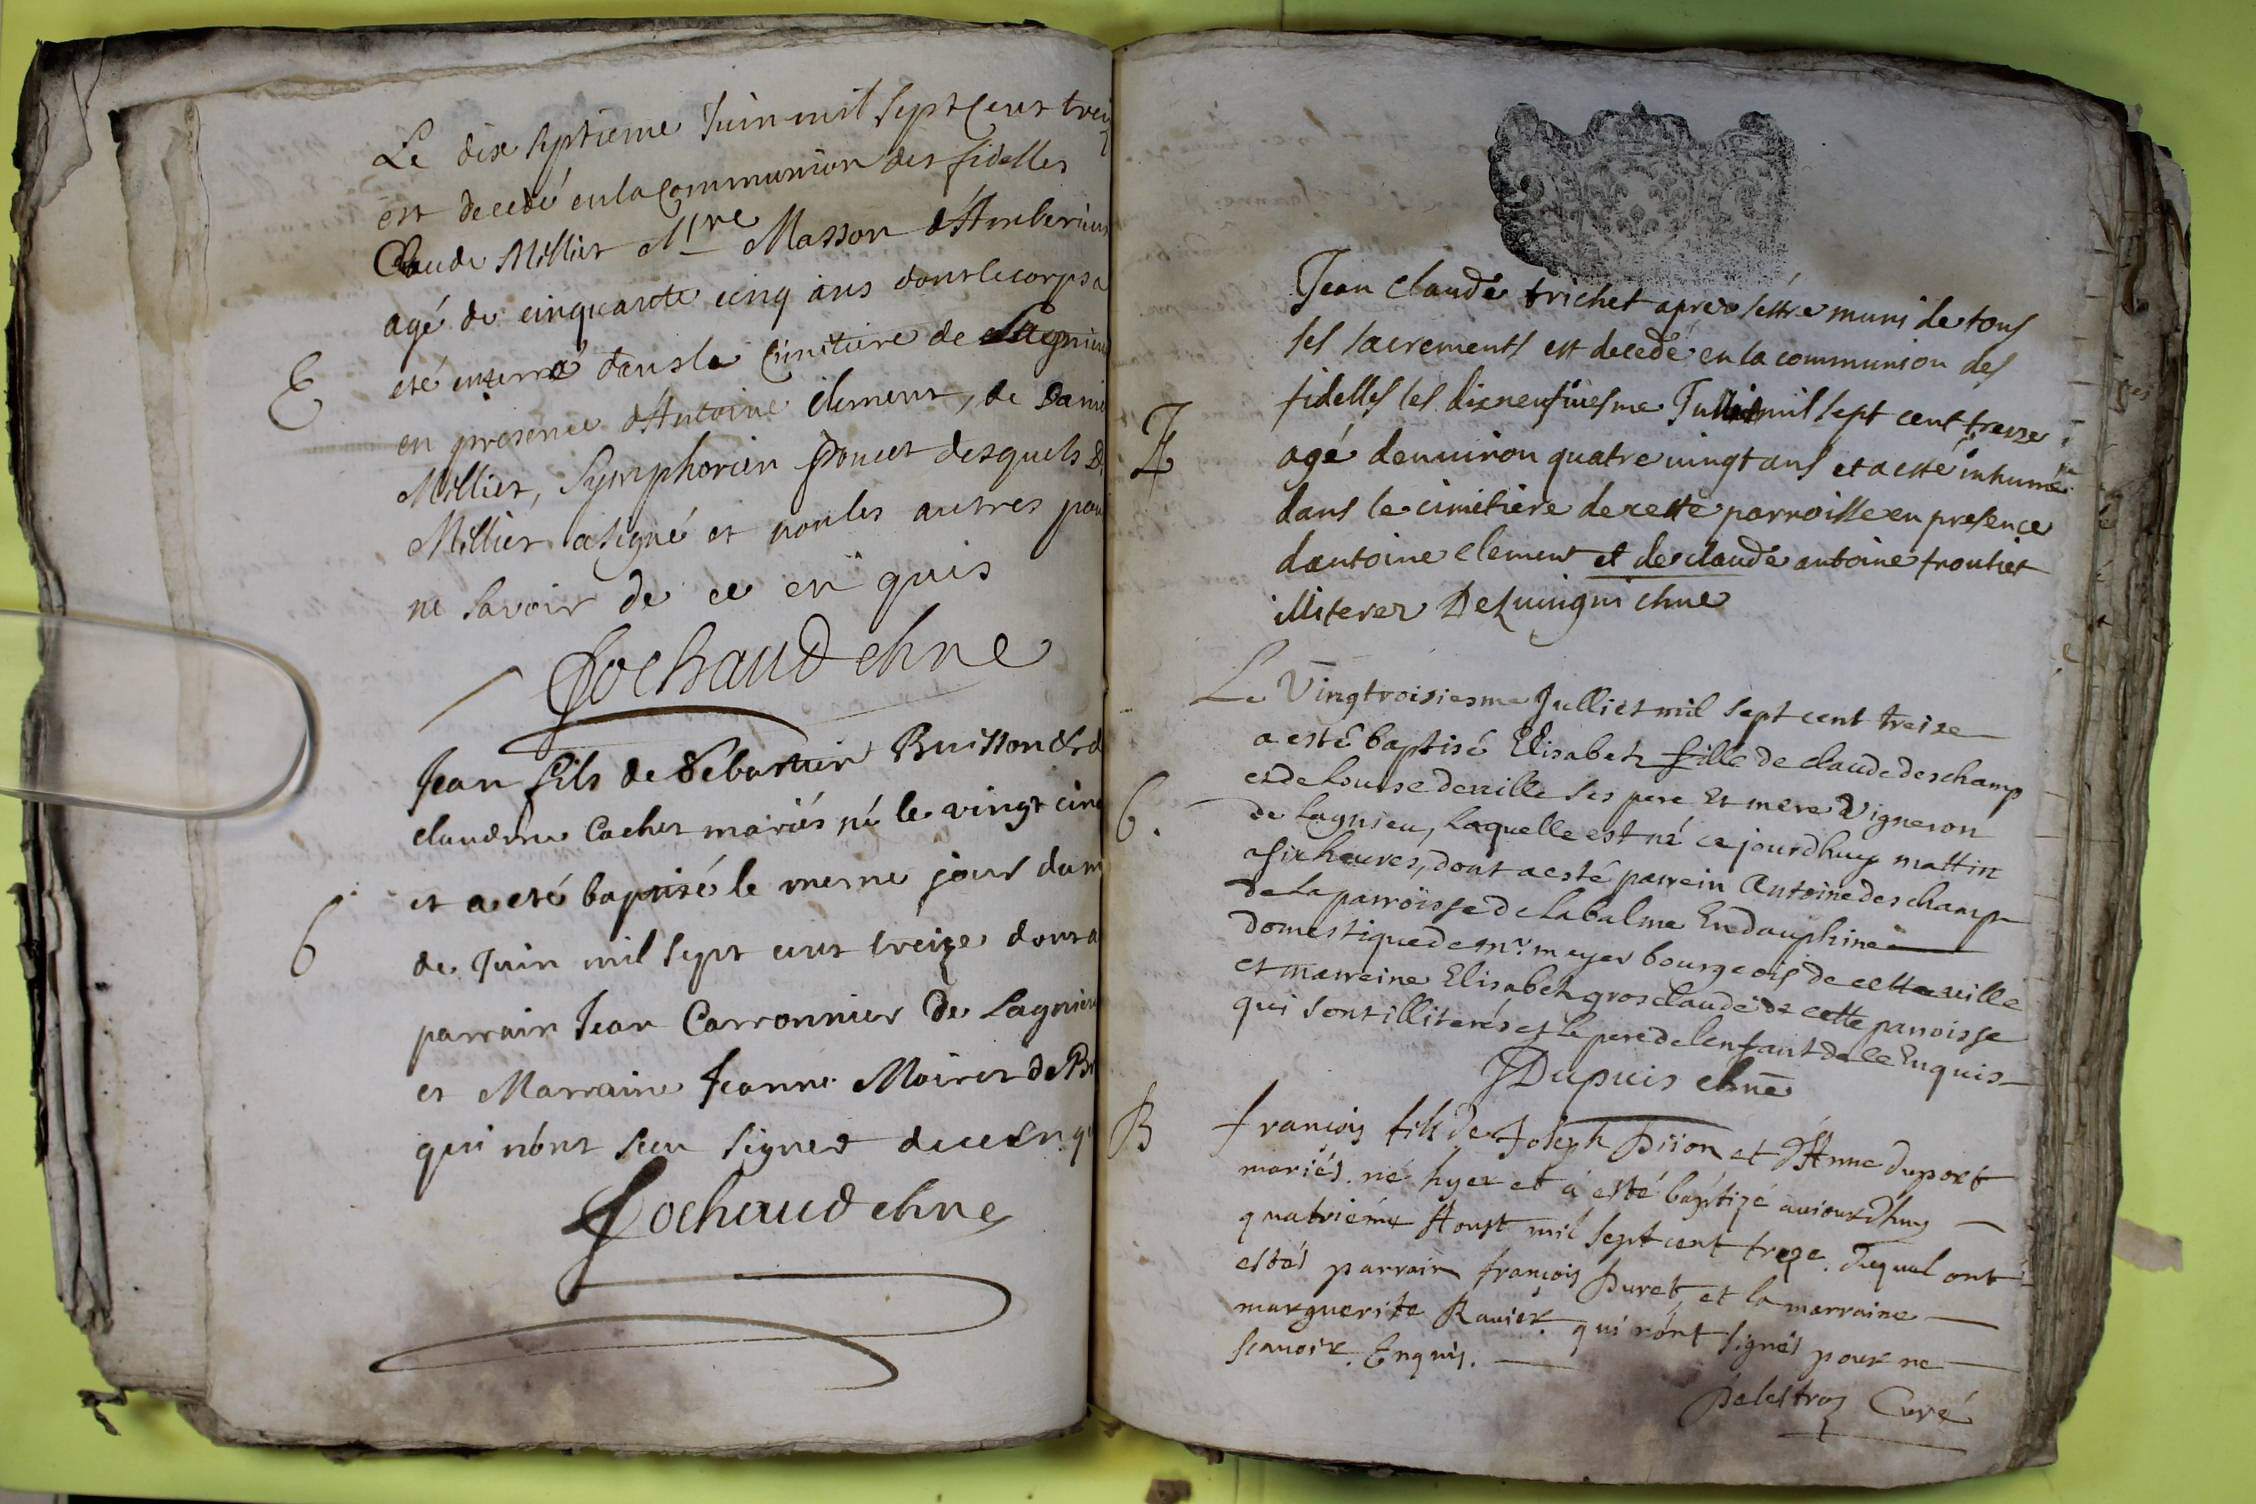 Le dix septieme Juin mil sept cent trei
est decedé en la Communion des fidelles
Claude Millier Mtre Masson d'Amberieux
agé de cinquante cinq ans dont le corps a
E
eté enterré dans le Cimetiere de Lagnieu
en presence d'Antoine Clement, de Danie
Millier, Symphorien Poncet desquels D.
Millier a signé et non les autres pour
ne savoir de ce enquis
Cochaud chne
Jean fils de Sebastien Buisson et d
claudine Cachet mariés né le vingt cinq
et a eté baptisé le meme jour du m
6
de Juin mil sept cent treize dont a
parrain Jean Carronnier de Lagnieu
et Marraine Jeanne Moiret de
qui n'ont sceu signer de ce Enqu
Cochaud chne
Jean Claude trichet apres sestre muni de tous
ses sacrements est decedé en la communion des
fidelles les dixneufviesme Jullet mil sept cent treize
agé denuiron quatre uingt ans et a esté inhumé
dans le cimetiere de cette parroisse en presence
dantoine clement et de claude antoine troulliet
illiterez chne
Le Vingtroisiesme Julliet mil sept cent treize
a esté baptisé Elisabeh fille de claude deschamp
et de Louise deuille ses pere Et mere Vigneron
6.
de Lagnieu, Laquelle est né ce jourdhuy mattin
a six heures, dont a esté parrein Antoine deschamp
de La parroisse de Labalme En dauphine
domestique de mr. meyer bourgeois de cette ville
et marreine Elisabeh grosclaude de cette parroisse
qui sont illiterés et le pere de lenfant de ce Enquis
JDupuis chne
B
françois fils de Joseph Dijon et d'Anne duport
mariés. né hyer et a esté baptizé auiourdhuy
quatriéme Aoust mil sept cent treze. duquel ont
estés parrain françois Duret, et la marraine
marguerite Ravier. qui n'ont signés pour ne
scauoir. Enquis.
Delestraz Curé